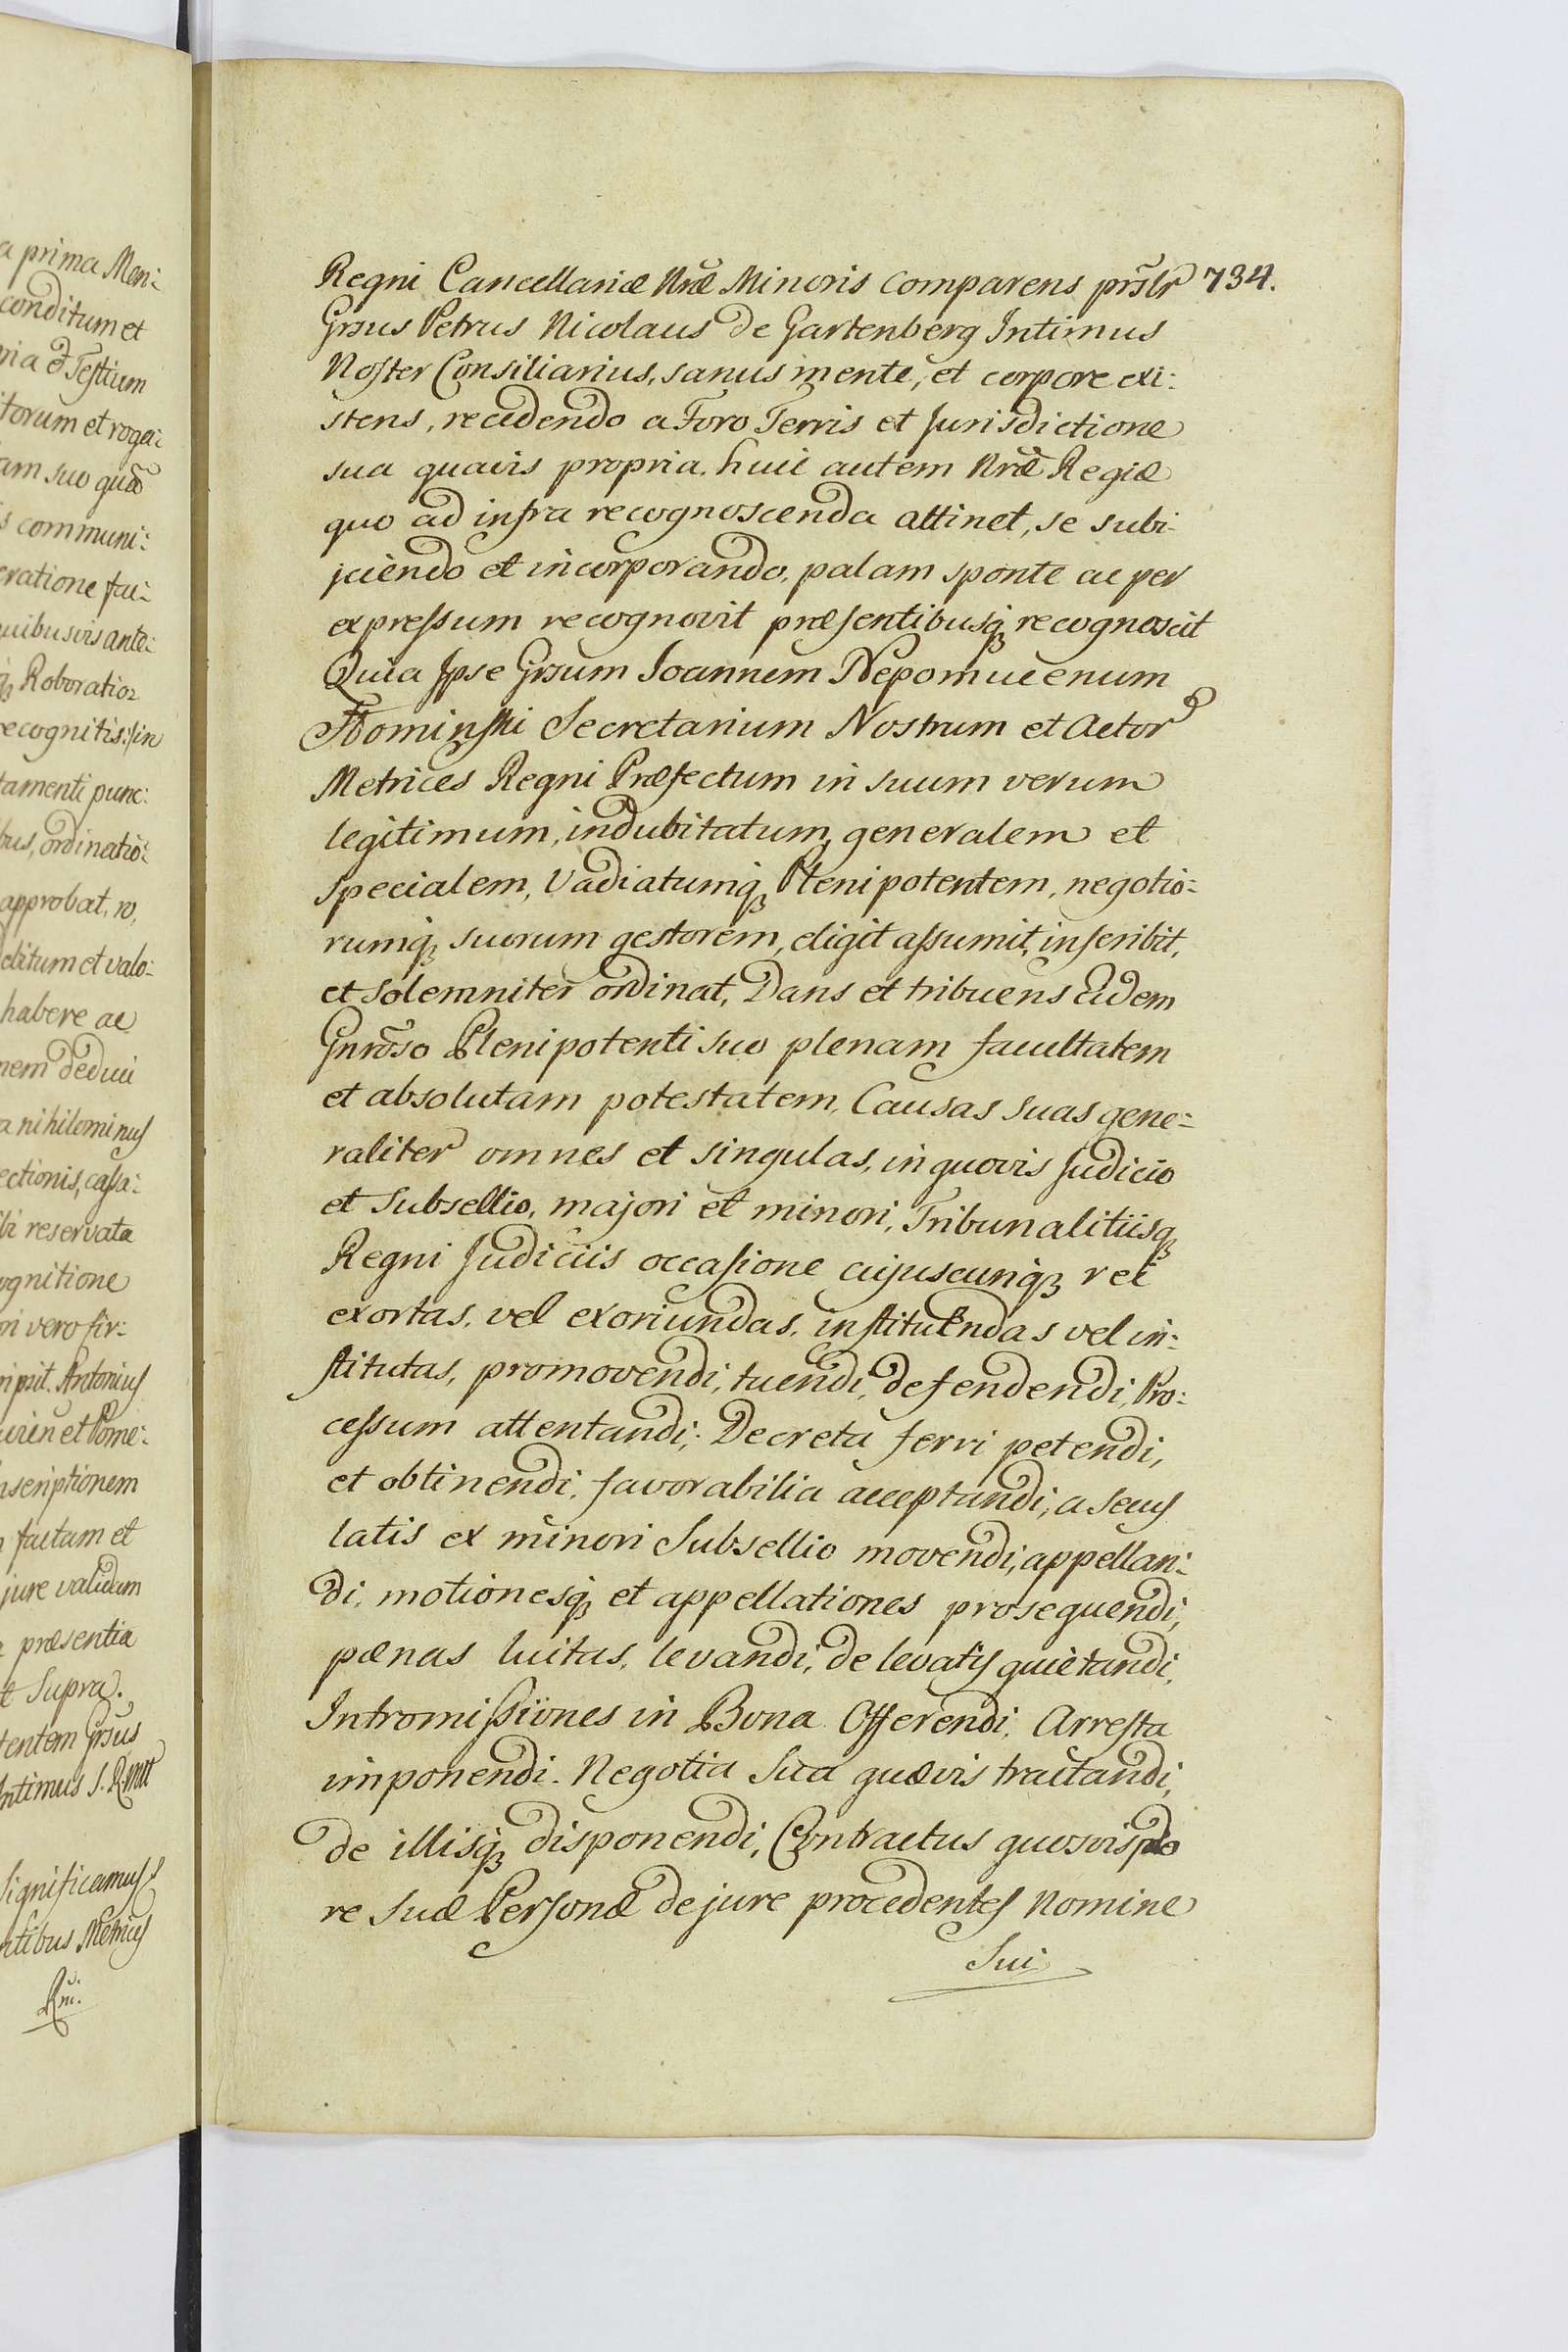 a prima Men:
conditum et
ria & Testium
itorum et roga:
am suo quo
s communi:
eratione fai:
quibusvis ante:
q3 Roboratio2
recognitis :/in
tamenti punc:
bus, ordinatio:
approbat, ro,
ditum et valo:
habere ac
nem deduci
a nihilominus
ectionis, cassa:
bi reservata
ognitione
ri vero fir:
ripsit. Antonius
et Pome:
nscriptionem
factam et
jure validum
præsentia
t Supra.
tentem Grsus
Intimus S. R. Mtt
Significamus
ntibus Metricis
Rni.
Regni Cancellariæ Nræ Minoris Comparens prslr 734.
Grsus Petrus Nicolaus de Gartenberg Intimus
Noster Consiliarius, sanus mente, et corpore exi:
stens, recedendo a Foro Terris et Jurisdictione
sua quavis propria, huic autem Nræ Regiæ
quo ad infra recognoscenda attinet, se subi:
jciendo et incorporando, palam sponte ac per
expressum recognovit præsentibusq3 recognoscit
Quia Ipse Grsum Joannem Nepomucenum
Słominski Secretarium Nostrum et Actor
Metrices Regni Præfectum in suum verum
legitimum, indubitatum, generalem et
specialem, Vadiatumq3 Plenipotentem, negotio:
rumq3 suorum gestorem, eligit assumit, inscribit,
et solemniter ordinat, Dans et tribuens Eidem
Gnroso Plenipotenti suo plenam facultatem
et absolutam potestatem, Causas suas gene:
raliter omnes et singulas, in quovis Judicio
et Subsellio, majori et minori, Tribunalitiisq3
Regni Judiciis occasione cujuscunq3 rei
exortas, vel exoriundas, instituendas vel in:
stitutas, promovendi, tuendi, defendendi, Pro:
cessum attentandi, Decreta ferri petendi,
et obtinendi, favorabilia acceptandi, a secus
latis ex minori Subsellio movendi, appellan:
di, motionesq3 et appellationes prosequendi,
pænas luitas, levandi, de levatis quietandi,
Intromissiones in Bona Offerendi, Arresta
imponendi. Negotia sua quævis tractandi,
de illisq3 disponendi, Contractus quosvis pro
re suæ Personæ de jure procedentes Nomine
Sui